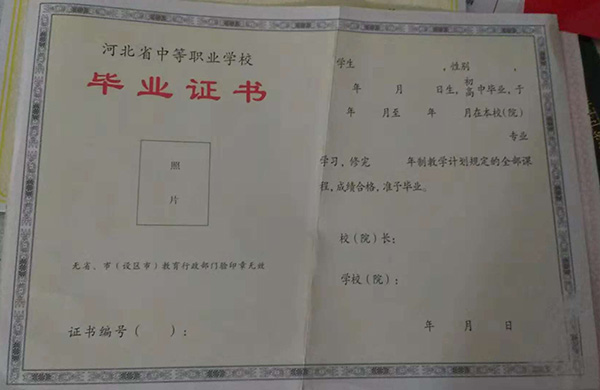 河北省中等职业学校
毕业证书
照
片
无省、市（设区市）教育行政部门验印章无效
证书编号（　　）：
学生　　　　　　，性别　　　，
年　　月　　日生，初高中毕业，于
年　　月至　　年　　月在本校(院)
专业
学习，修完　　　年制教学计划规定的全部课
程，成绩合格，准予毕业。
校（院）长：
学校（院）：
年　　月　　日